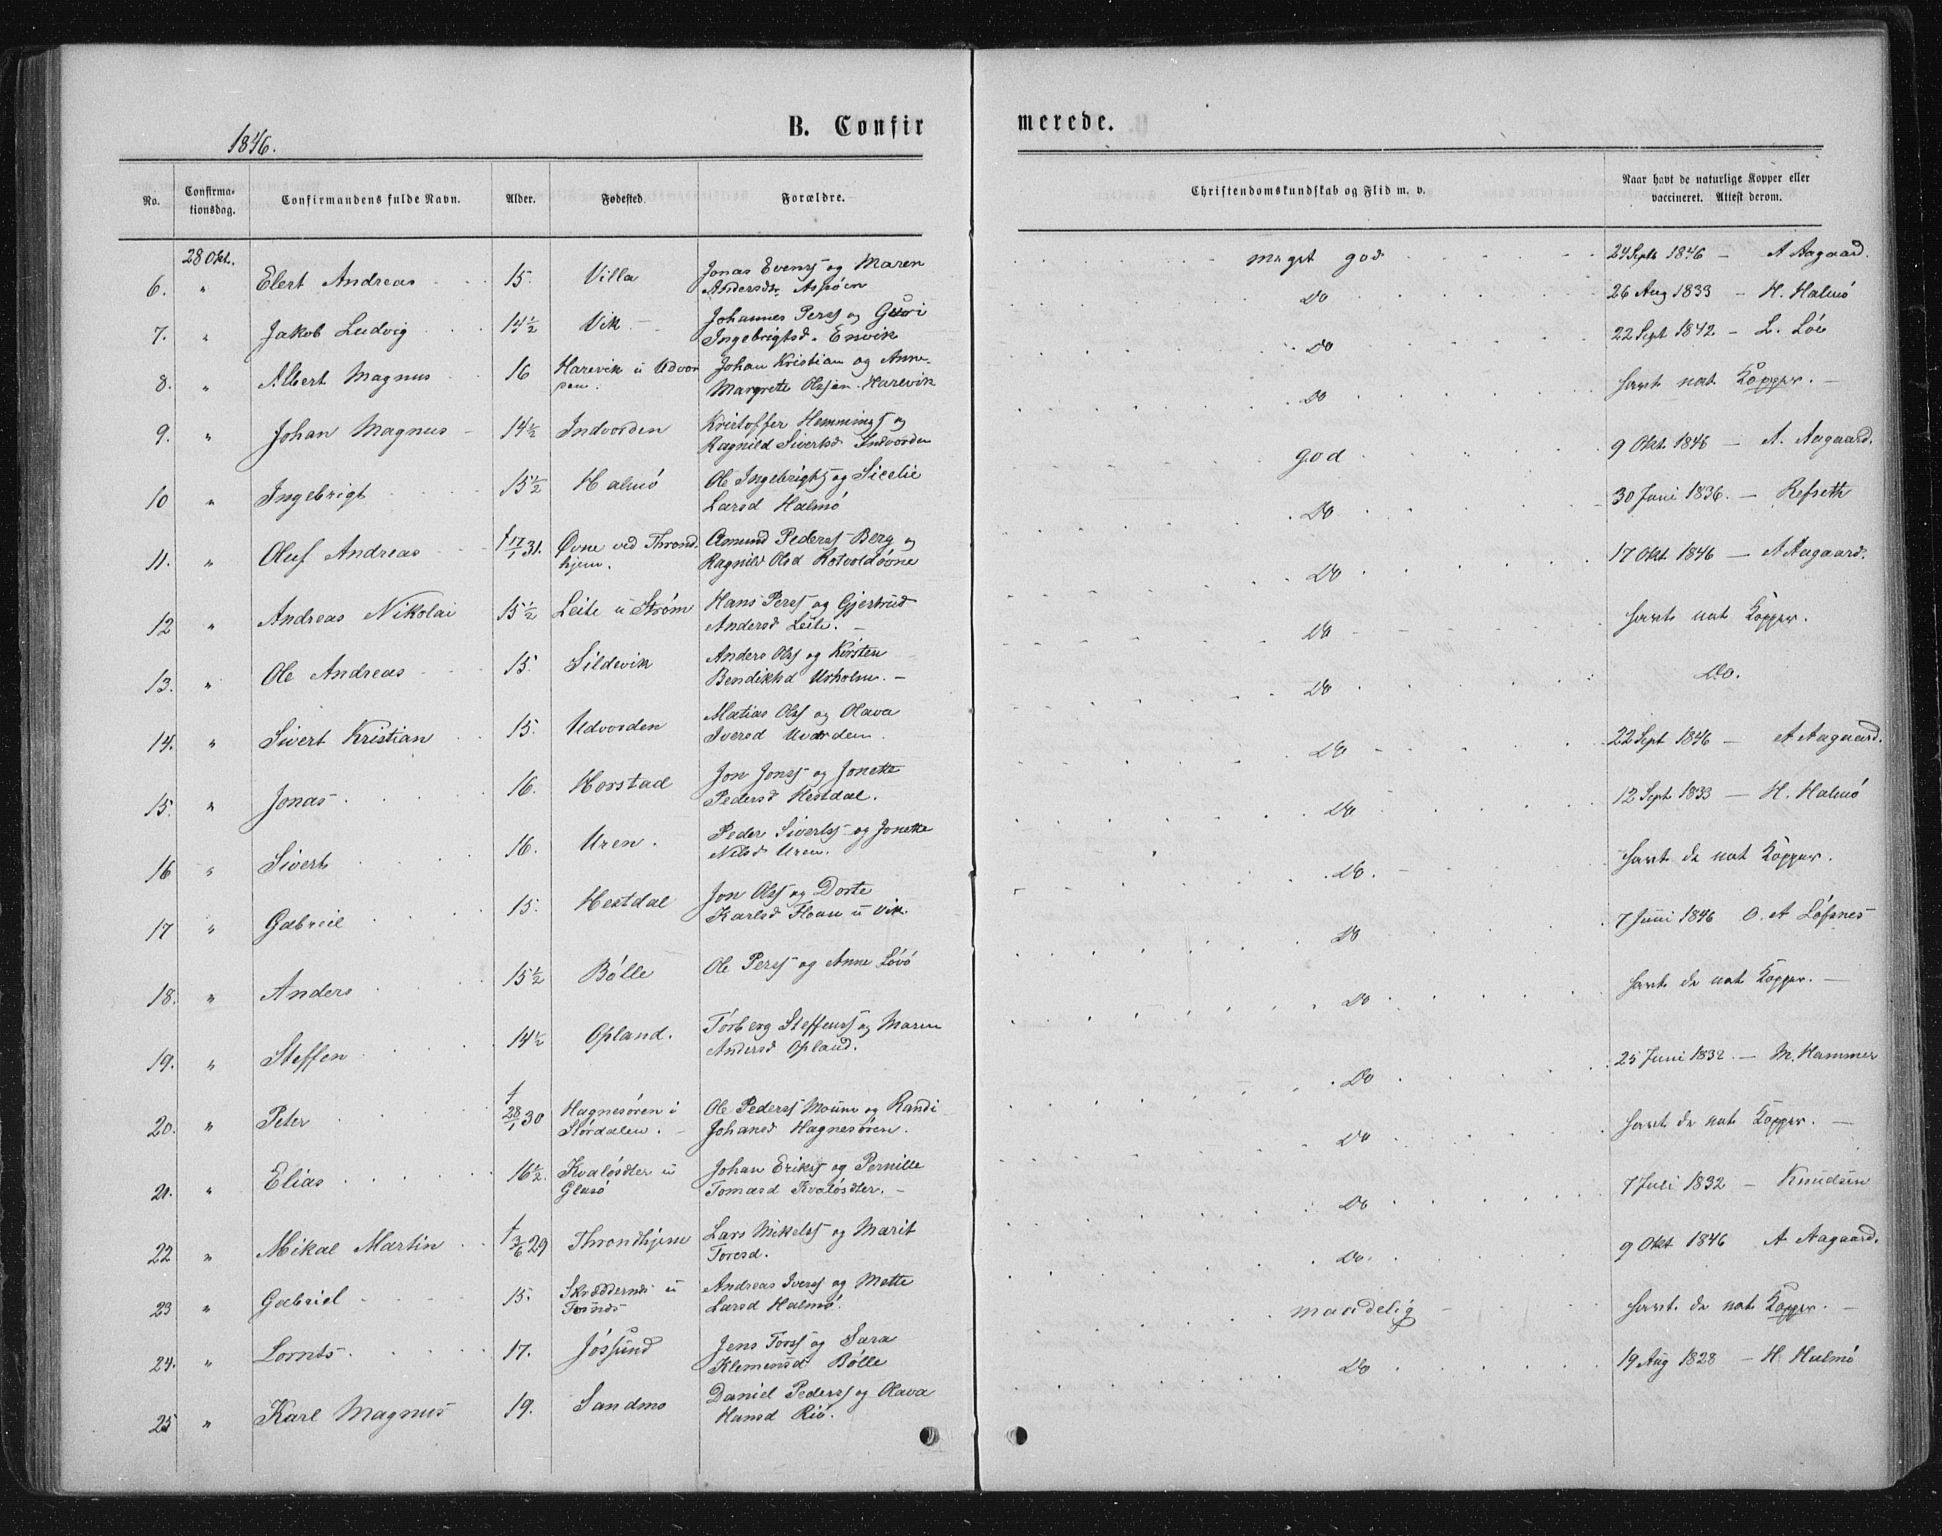 1846.
B. Confir
merede.
No.
Confirma-
tionsdag.
Confirmandens fulde Navn.
Alder.
Fødested.
Forældre.
Christendomskundskab og Flid m. v.
Naar havt de naturlige Kopper eller
vaccineret. Attest derom.
28 Okt.
6. " Elert Andreas 15. Villa Jonas Evensf og Maren
Andersdr. Aspöen
meget god 24 Septb 1846 — A Aagaard.
7. " Jakob Ludvig 14½ Vik — Johannes Persf og Guri
Ingebrigtsd. Envik
Do 26 Aug 1833 — H. Halmö
8. " Albert Magnus 16 Harevik u Udvor
den. Johan Kristian og Anne
Margrete Olsen Harevik
Do 22 Sept 1842 — L. Löe
9. " Johan Magnus 14½ Indvorden Kristoffer Hemmingsf og
Ragnild Sivertsd Indvorden
Do havt nat Kopper. —
10 " Ingebrigt 15½ Halmö Ole Ingebrigtsf og Sicelie
Larsd Halmö
god 9 Okt 1846 — A. Aagaard.
11. " Oluf Andreas f 17/1 31. Øvne ved Thrond
hjem. Amund Pedersf Berg og
Ragnild Olsd Rotvoldøvne
Do 30 Juni 1836. — Refseth
12 " Andreas Nikolai 15½ Leite u Strøm Hans Persf og Gjertrud
Andersd Leite. —
Do 17 Okt 1846 — A Aagaard.
13. " Ole Andreas 15. Sildevik Anders Olsf og Kirsten
Bendiktsd Urholm. —
Do havt nat Kopper.
14. " Sivert Kristian 15. Udvorden Matias Olsf og Olava
Iversd Uvorden.
Do Do.
15. " Jonas 16. Horstad Jon Jonsf og Jonette
Pedersd Hestdal.
Do 22 Sept 1846 — A Aagaard.
16 " Sivert 16. Uren. Peder Sivertsf og Jonette
Nilsd Uren.
Do 12 Sept 1833 — H. Halmö
17 " Gabriel 15. Hestdal Jon Olsf og Dorte
Karlsd Floan u Vik.
Do. havt de nat Kopper.
18. " Anders 15½ Bölle Ole Persf og Anne Lövö
Do 7 Juni 1846 O. A Löfsnes
19. " Steffen 14½ Opland. Torberg Steffensf og Maren
Andersd Opland.
Do havt de nat Kopper. —
20. " Peter f 28/1 30 Hagnesören i
Størdalen. Ole Pedersf Moum og Randi
Johansd Hagnesören.
Do 25 Juni 1832. — M. Hammer
21. " Elias 16½. Kvalösæter u
Glasö Johan Eriksf og Pernille
Tomasd Kvalösæter. —
Do havt de nat Kopper. —
22 " Mikal Martin f 3/6 29 Throndhjem Lars Mikelsf og Marit
Toresd.
Do 7 Juli 1832 — Knudsen
23 " Gabriel 15. Skreddernes u
Fosnæs Andreas Iversf og Mette
Larsd Halmö.
Do. 9 Okt 1846 A Aagaard.
24. " Lornts 17. Jössund Jens Torsf og Sara
Klemensd Bölle
maadelig havt de nat Kopper. —
25 " Karl Magnus 19. Sandmo Daniel Pedersf og Olava
Hansd Riö.
Do 19 Aug 1828 — H Halmö